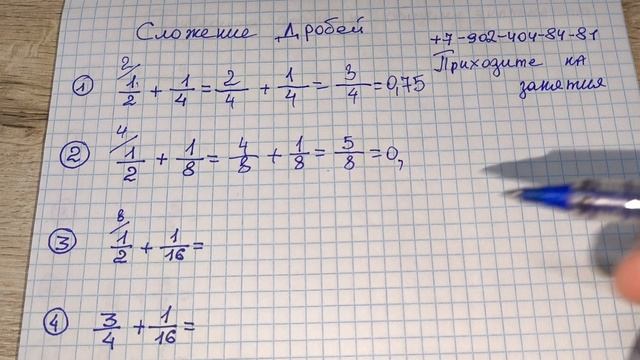 Сложение Дробей
+7-902-404-84-81
Приходите на
занятия
① 2/ 1/2 + 1/4 = 2/4 + 1/4 = 3/4 = 0,75
② 4/ 1/2 + 1/8 = 4/8 + 1/8 = 5/8 = 0,
③ 8/ 1/2 + 1/16 =
④ 3/4 + 1/16 =